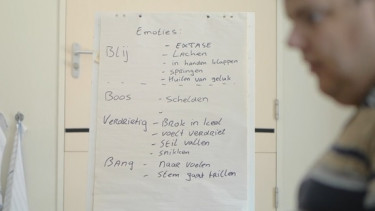 Emoties
- EXTASE
Blij - Lachen
- in handen klappen
- springen
- Huilen van geluk
Boos - Schelden
-
Verdrietig - Brok in keel
- voelt verdriet
- Stil vallen
- Snikken
Bang - naar voelen
- Stem gaat trillen